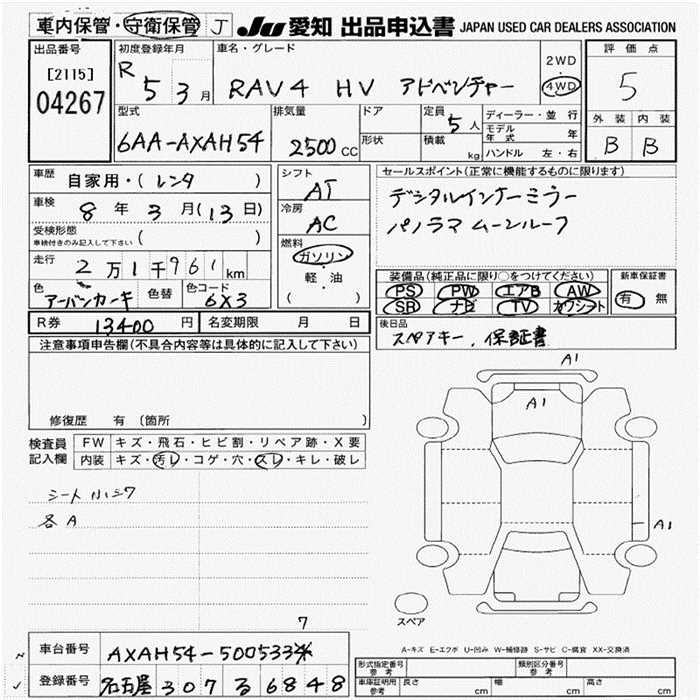 車内保管・守衛保管 J JU 愛知 出品申込書 JAPAN USED CAR DEALERS ASSOCIATION
出品番号 [2115] 04267
初度登録年月 R 5 3月
車名・グレード RAV4 HV アドベンチャー
2WD ・ 4WD
評価点 5
型式 6AA-AXAH54
排気量 2500 CC
ドア
形状
定員 5人
積載 kg
ディーラー・並行
モデル年式 年
ハンドル 左・右
外装 内装
B B
車歴 自家用・(レンタ )
車検 8年 3月(13日)
受検形態 車検付きのみ記入して下さい ( )
走行 2万1千961km
色 アーバンカーキ 色替 色コード 6X3
シフト AT
冷房 AC
燃料 ガソリン
軽・油
( )
セールスポイント(正常に機能するものに限ります)
デジタルインナーミラー
パノラマムーンルーフ
装備品(純正品に限り○をつけてください)
PS PW エアB AW
SR ナビ TV カワシート
新車保証書
有 無
R券 13400円 名変期限 月 日
後日品
スペアキー, 保証書
注意事項申告欄(不具合内容等は具体的に記入して下さい)
修復歴 有 (箇所 )
検査員記入欄
FW キズ・飛石・ヒビ割・リペア跡・X要
内装 キズ・汚レ・コゲ・穴・スレ・キレ・破レ
シート小シワ
各A
7
A1
A1
A1
スペア
A-キズ E-エクボ U-凹み W-補修跡 S-サビ C-腐食 XX-交換済
車台番号 AXAH54-500533※
登録番号 名古屋 307 る 6848
形式指定番号 参考
類別区分番号 参考
車庫証明用 参考 長さ cm 幅 cm 高さ cm